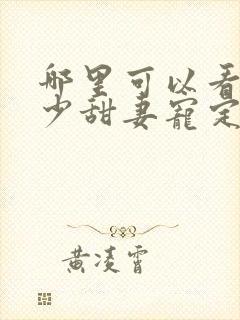 那里可以看
少甜妻宠定
黄凌霄